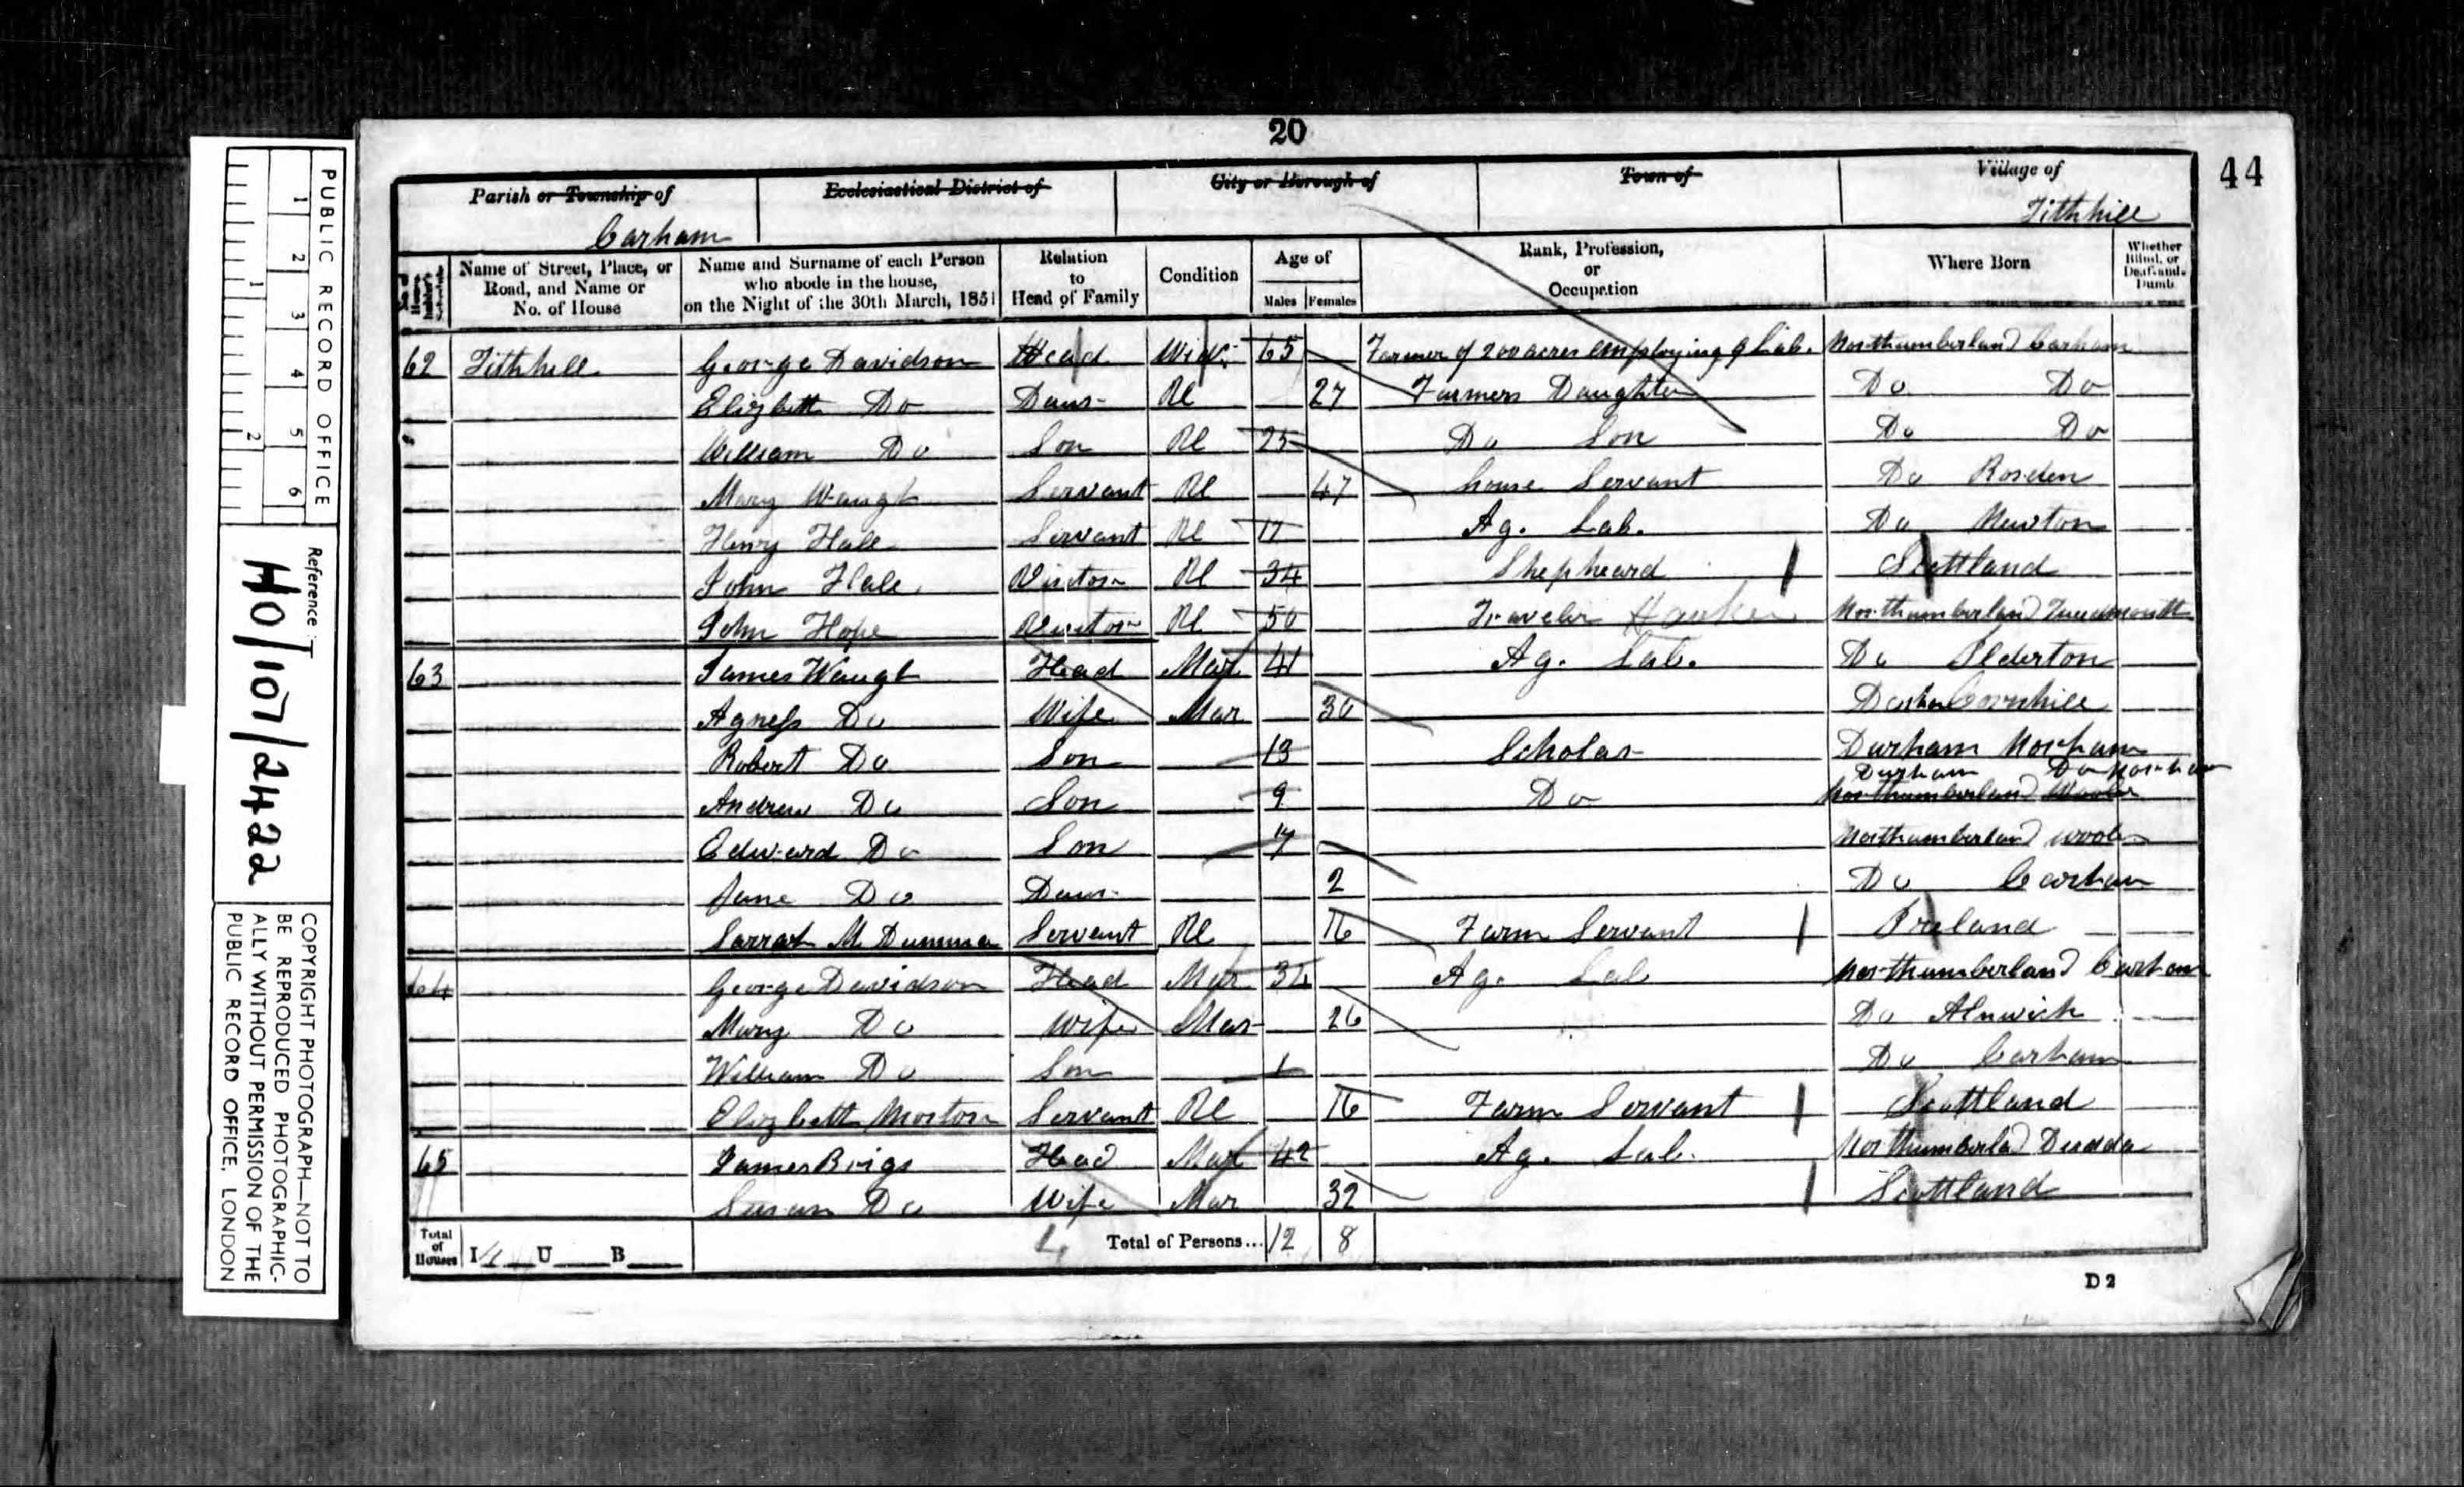 20
44
Parish or Township of
Carham
Ecclesiastical District of
City or Borough of
Town of
Village of
Tithhill
Name of Street, Place, or Road, and Name or No. of House
Name and Surname of each Person who abode in the house, on the Night of the 30th March, 1851
Relation to Head of Family
Condition
Age of
Males Females
Rank, Profession, or Occupation
Where Born
Whether Blind, or Deaf-and-Dumb
62 Tithhill George Davidson Head Wid. 65 Farmer of 200 acres employing 9 Lab. Northumberland Carham
Elizbett Do Daur 27 Farmers Daughter Do Do
William Do Son 25 Do Son Do Do
Mary Waugh Servant 47 house Servant Do Rosden
Henry Hall Servant 17 Ag. Lab. Do Newton
John Hall Visitor 34 Shepheard Scottland
John Hope Visitor 50 Traveler Hawker Northumberland Tweedmouth
63 James Waugh Head Mar 41 Ag. Lab. Do Ilderton
Agness Do Wife Mar 30 Cornhill
Robert Do Son 13 Scholar Durham Norham
Andrew Do Son 9 Do Durham Do Norham
Northumberland Wooler
Edward Do Son Northumberland Wooler
Jane Do Daur 2 Do Carham
Sarrah Servant 16 Farm Servant Ireland
64 George Davidson Head Mar Ag. Lab Northumberland Carham
Mary Do Wife Mar 26 Do Alnwick
William Do Son 1 Do Carham
Elizbett Morton Servant 16 Farm Servant Scottland
65 James Brigs Head Mar 42 Ag. Lab. Northumberlad Duddo
Susan Do Wife Mar 32 Scottland
Total of Houses I 4 U B 4 Total of Persons... 12 8
D 2
PUBLIC RECORD OFFICE
1 2 3 4 5 6
1 2
Reference :-
HO/107/2422
COPYRIGHT PHOTOGRAPH—NOT TO
BE REPRODUCED PHOTOGRAPHIC-
ALLY WITHOUT PERMISSION OF THE
PUBLIC RECORD OFFICE, LONDON